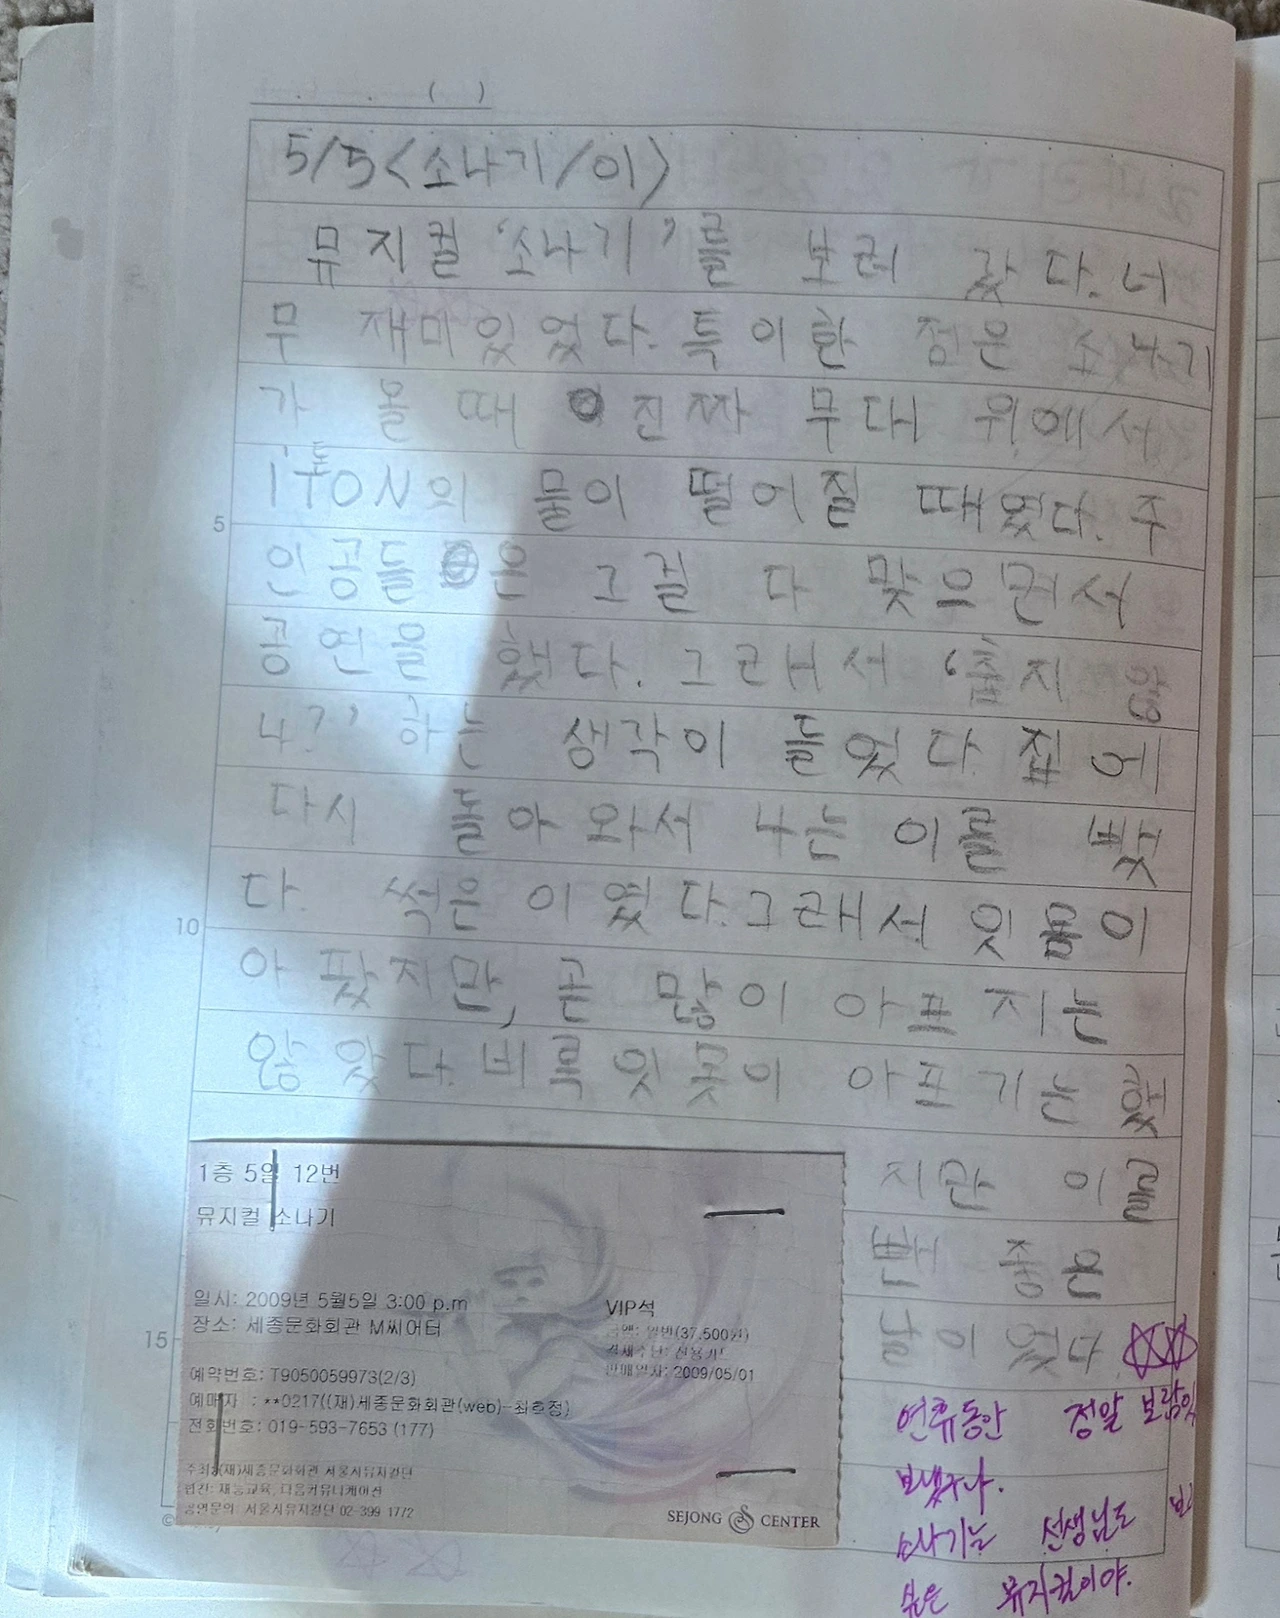 . . ( )
5/5<소나기/이>
뮤지컬 '소나기'를 보러 갔다. 너
무 재미있었다. 특이한 점은 소나기
가 올 때 진짜 무대 위에서
1톤
TON의 물이 떨어질 때였다. 주
5
인공들은 그걸 다 맞으면서
공연을 했다. 그래서 '춥지 않
나?' 하는 생각이 들었다. 집에
다시 돌아와서 나는 이를 뺏
다. 썩은 이였다. 그래서 잇몸이
10
아팠지만, 곧 많이 아프지는
않았다. 비록 잇못이 아프기는 했
지만 이를
뺀 좋은
날이었다.
15
1층 5열 12번
뮤지컬 소나기
일시: 2009년 5월5일 3:00 p.m
장소: 세종문화회관 M씨어터
예약번호: T9050059973(2/3)
예매자 : **0217((재)세종문화회관(web)-최호정)
전화번호: 019-593-7653 (177)
주최: (재)세종문화회관 서울시뮤지컬단
협찬: 재능교육, 다음커뮤니케이션
공연문의: 서울시뮤지컬단 02-399-1772
VIP석
금액: 일반(37,500원)
결제수단: 신용카드
판매일자: 2009/05/01
SEJONG CENTER
연휴동안 정말 보람있
보냈구나.
소나기는 선생님도
싶은 뮤지컬이야.